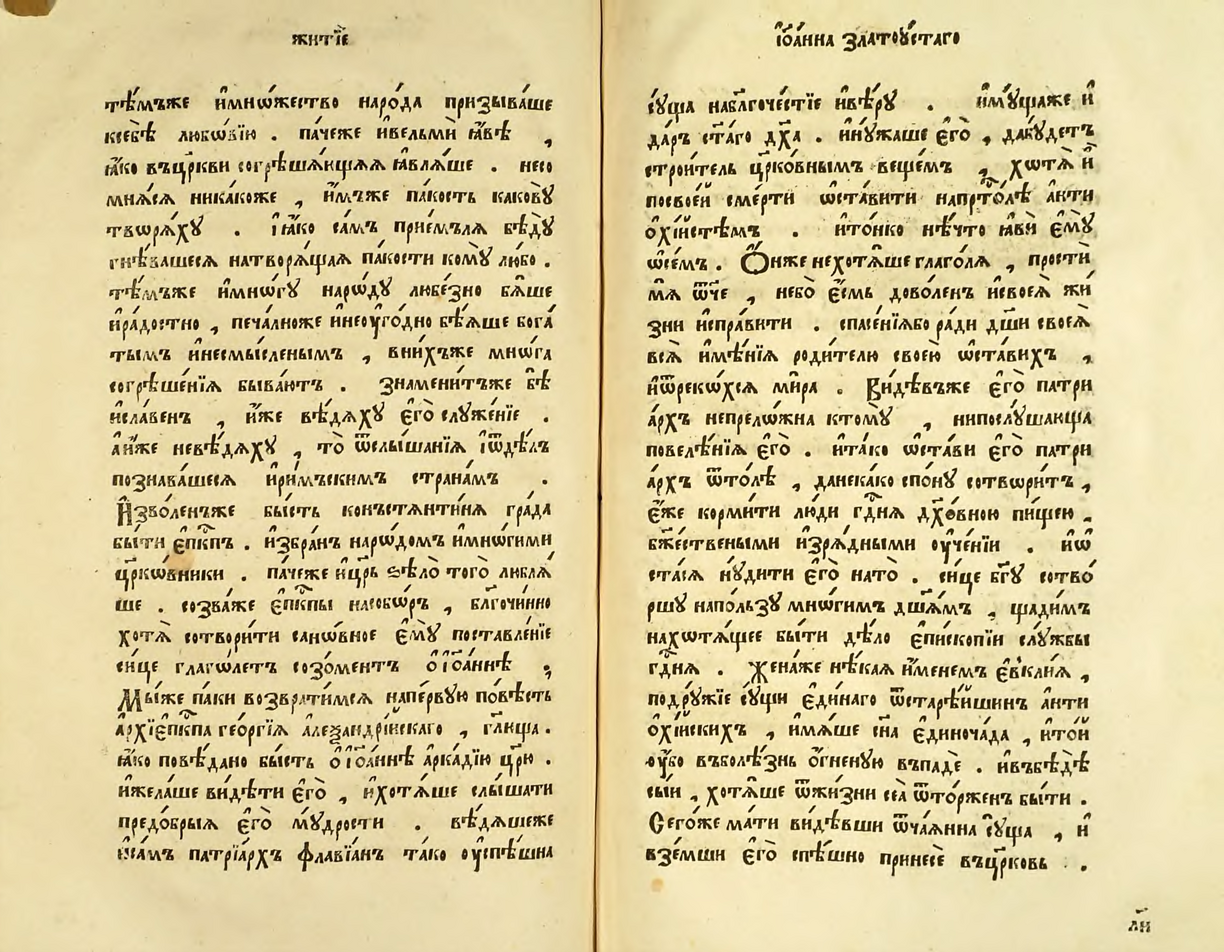 житїе
тѣмъже имнѡжество народа призываше
ксебѣ любовїю . пачеже ивельми ꙗвѣ ,
ꙗко въцр҃кви согрѣшѧющѧѧ ꙗвлѧше . несо
мнѧсѧ никакоже , имъже пакость каковꙋ
творѧхꙋ . ꙗко самъ приемълѧ бѣдꙋ
гнѣвашесѧ натворѧщаѧ пакости комꙋ любо .
тѣмъже имнѡгꙋ нарѡдꙋ любезно бѧше
ирадостно , печалноже инеоугодно бѣѧше бога
тымъ инесмысленымъ , внихъже мнѡга
согрѣшенїѧ бываютъ . знаменитъже бѣ
иславенъ , иже вѣдѧхꙋ его слꙋженїе .
аиже невѣдѧхꙋ , то ѿслышанїѧ иѿдѣлъ
познавашесѧ иримъскимъ странамъ .
Изволенъже бысть конъстѧнтинѧ града
быти еп҃кпъ . избранъ нарѡдомъ имнѡгими
цр҃кѡвники . пачеже ицр҃ь ѕѣло того люблѧ
ше . созваже еп҃кпы насобѡръ , бл҃гочинно
хотѧ сотворити санѡвное емꙋ поставленїе
сице глагѡлетъ созоментъ о іоаннѣ ;
Мыже паки возвратимсѧ напервꙋю повѣсть
архїеп҃кпа георгїѧ алеѯандрїискаго , гл҃юща .
ꙗко повѣдано бысть о іоаннѣ аркадїю цр҃ю .
ижелаше видѣти его , ихотѧше слышати
предобрыѧ его мꙋдрости . вѣдѧшеже
исамъ патрїархъ флавїанъ тако оуспѣшна
іѡанна златоꙋстаго
сꙋща набл҃гочестїе ивѣрꙋ . имꙋщаже и
даръ ст҃аго дх҃а . инꙋжаше его , дабꙋдетъ
строитель цр҃ковнымъ вещемъ , хотѧ и
посвоеи смерти ѡставити напрт҃олѣ анти
охїистѣмъ . итонко нѣчто ꙗви емꙋ
ѡсемъ . Онже нехотѧше глаголѧ , прости
мѧ ѿче , небо есмь доволенъ исвоеѧ жи
зни исправити . спасенїѧбо ради дш҃и своеѧ
всѧ имѣнїѧ родителю своею ѡставихъ ,
иѿрекохсѧ мира . Видѣвъже его патри
архъ непрелѡжна ктомꙋ , нипослꙋшающа
повелѣнїѧ его . итако ѡстави его патри
архъ ѿтолѣ , данекако спонꙋ сотвѡритъ ,
еже кормити люди гд҃нѧ дх҃овною пищею .
бж҃ествеными изрѧдными оучении . иѡ
стасѧ нꙋдити его нато . сице бг҃ꙋ сотво
ршꙋ наползꙋ мнѡгимъ дш҃ѧмъ , щадимъ
нахотѧщее быти дѣло епископїи слꙋжбы
гд҃нѧ . Женаже нѣкаѧ именемъ евклиѧ ,
подрꙋжїе сꙋщи единаго ѿстарѣишинъ анти
охїискихъ , имѧше сн҃а единочада , итои
оубо въболѣзнь огненꙋю въпаде . ивъбѣдѣ
сыи , хотѧше ѿжизни сеѧ ѿторженъ быти .
Сегоже мати видѣвши ѿчаѧнна сꙋща , и
вземши его спѣшно принесе въцр҃ковь .
ли